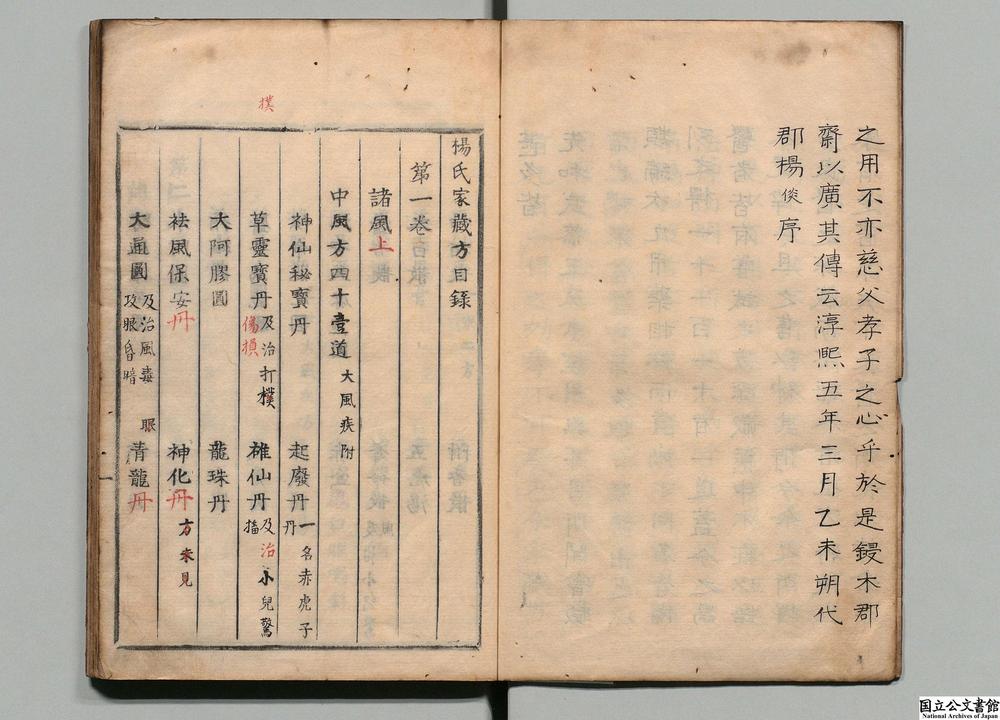 之用不亦慈父孝子之心乎於是鋟木郡
齋以廣其傳云淳熙五年三月乙未朔代
郡楊倓序
楊氏家藏方目錄
第一卷
諸風上
中風方四十壹道 大風疾附
神仙秘寶丹 起廢丹 一名赤虎子丹
草靈寶丹 及治打撲傷損 碓仙丹 及治小兒驚搐
大阿膠圓 龍珠丹
祛風保安丹 神化丹 方未見
大通圓 及治風毒攻眼昏暗 青龍丹
撲
眼
国立公文書館
National Archives of Japan